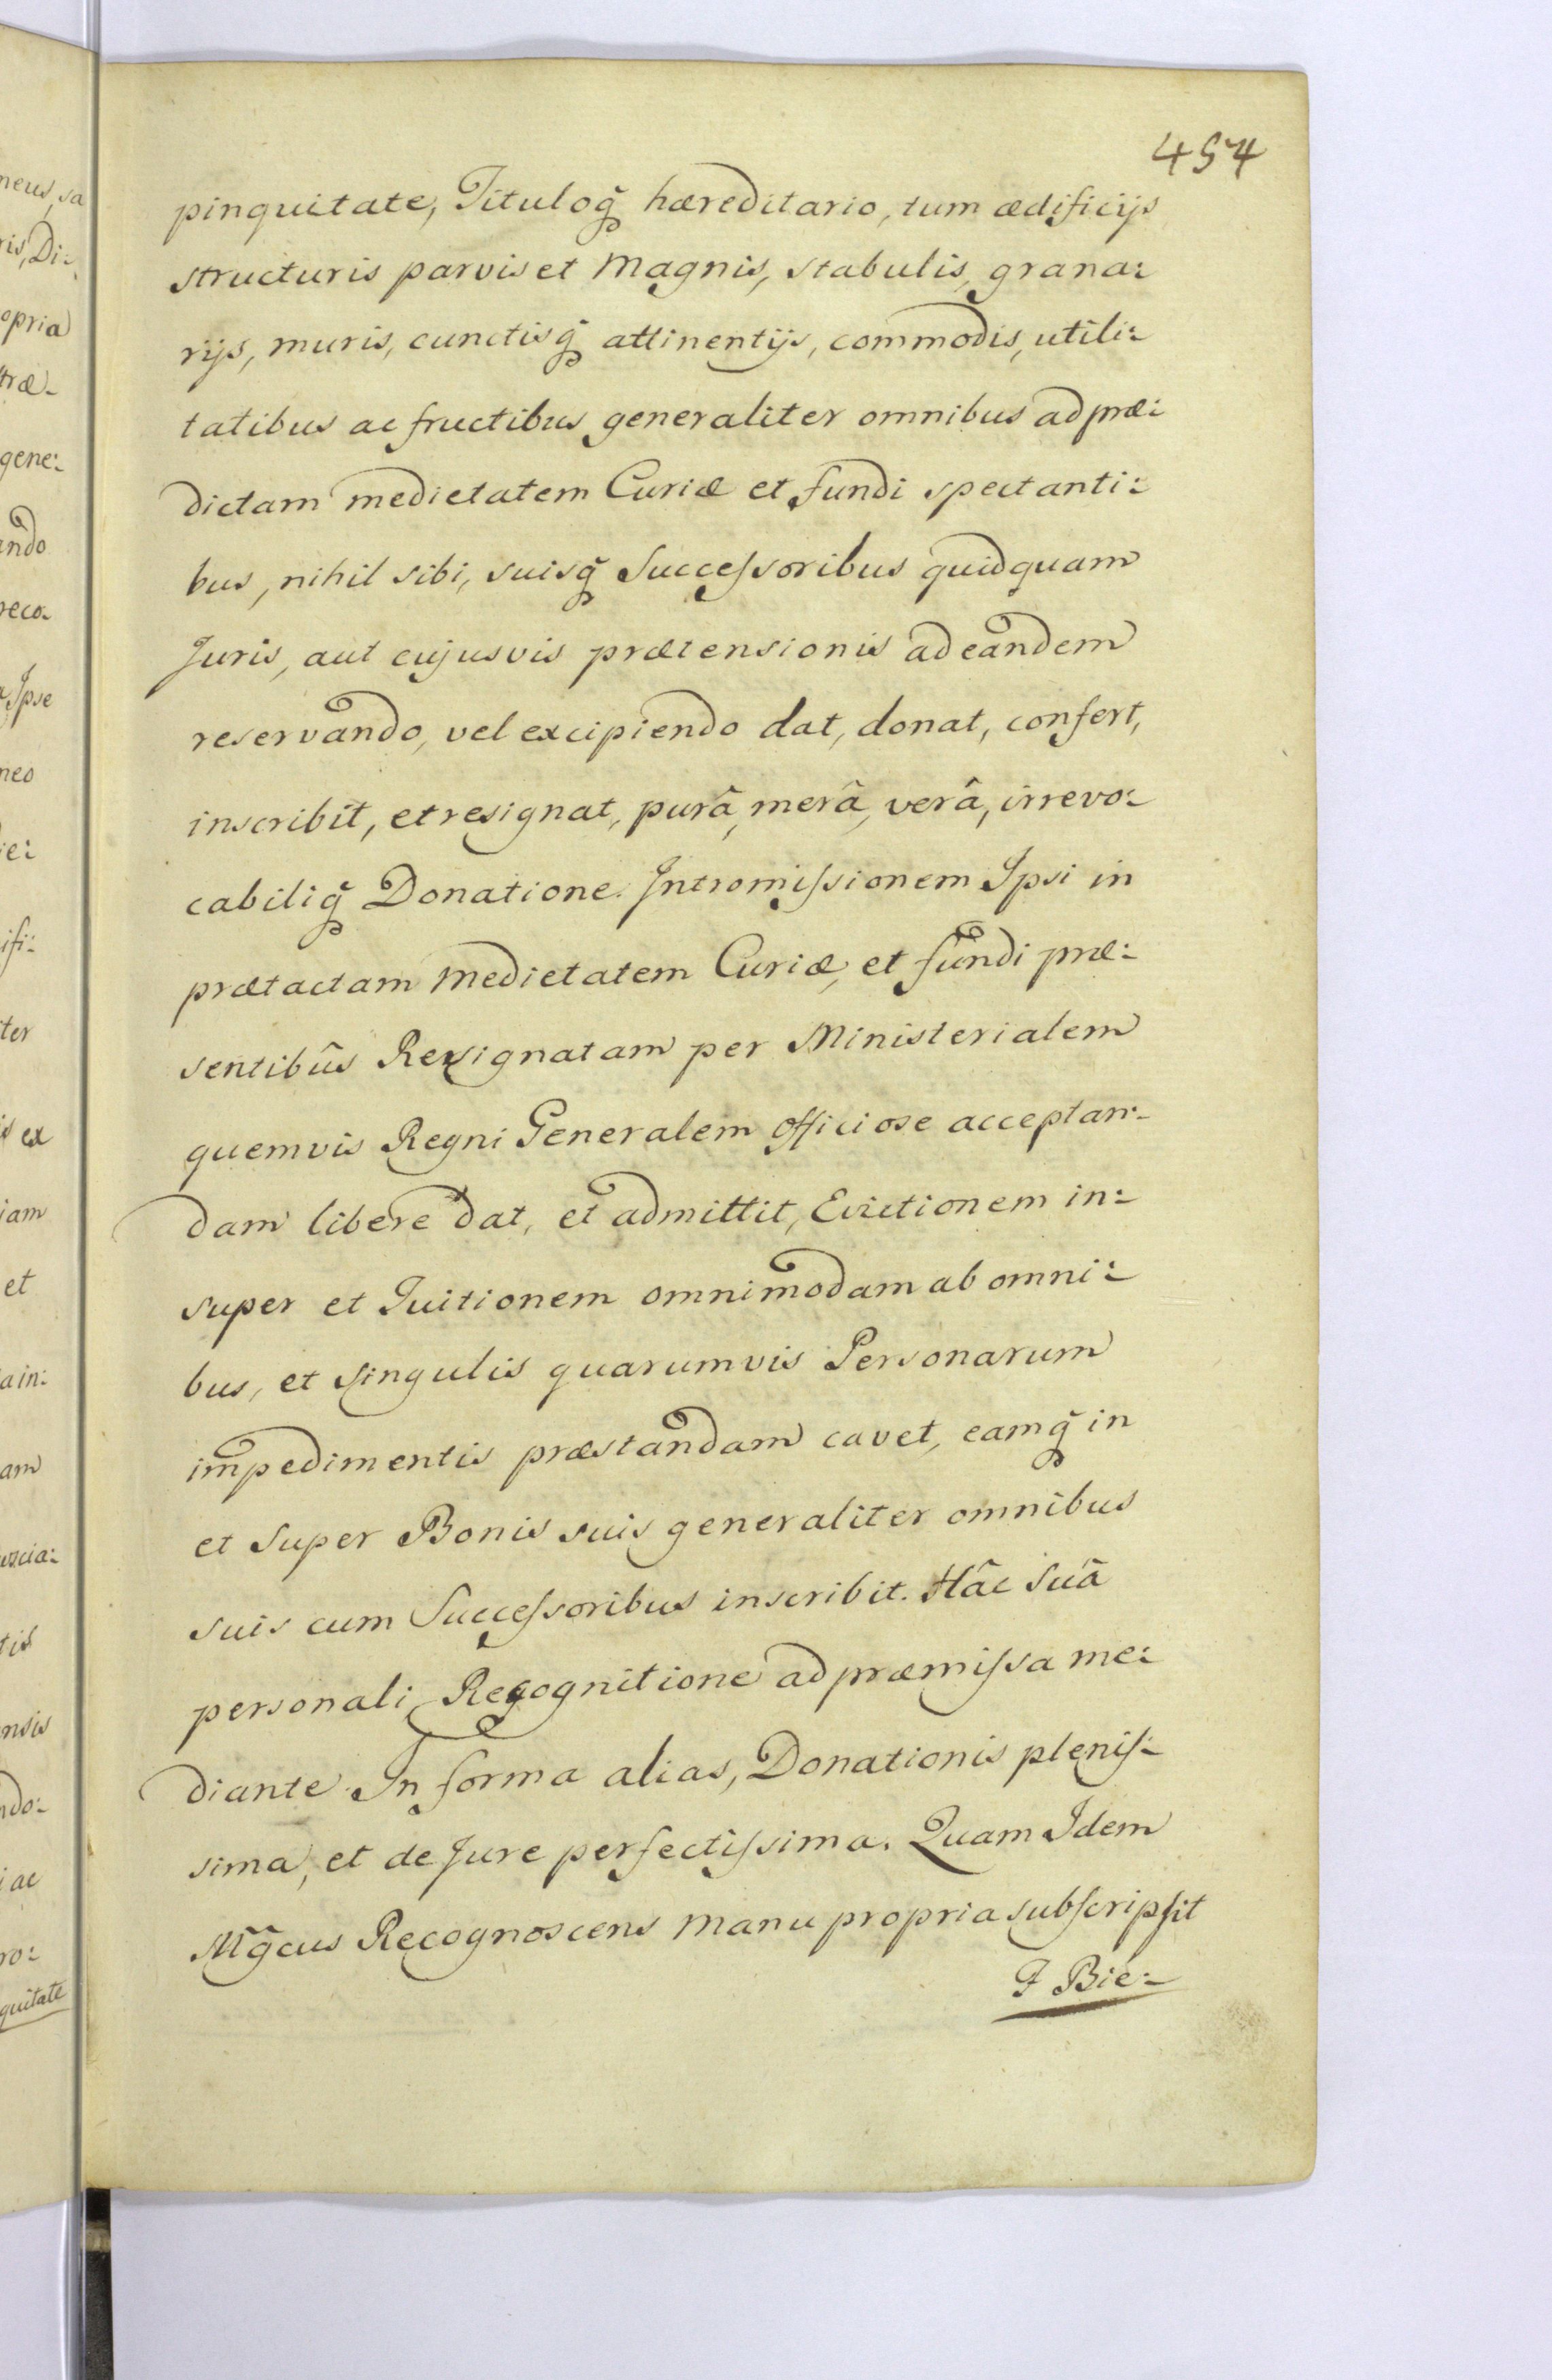 454
pinguitate, Tituloq̃ hæreditario, tum ædificijs
structuris parvis et Magnis, stabulis, grana:
rijs, muris, cunctisq̃ attinentijs, commodis, utili:
tatibus ac fructibus generaliter omnibus ad præ:
dictam medietatem Curiæ et fundi spectanti:
bus, nihil sibi, suisq̃ Succeſsoribus quidquam
Juris, aut cujusvis prætensionis ad eandem
reservando, vel excipiendo dat, donat, confert,
inscribit, et resignat, purâ, merâ, verâ, irrevo:
cabiliq̃ Donatione. Intromiſsionem Ipsi in
prætactam Medietatem Curiæ, et fundi præ:
sentibûs Resignatam per Ministerialem
quemvis Regni Generalem officiose acceptan:
dam libere dat, et admittit, Evictionem in:
super et Tuitionem omnimodam ab omni:
bus, et singulis quarumvis Personarum
impedimentis præstandam cavet, eamq̃ in
et Super Bonis suis generaliter omnibus
suis cum Succeſsoribus inscribit. Hâc Suâ
personali Recognitione ad præmiſsa me:
diante. In forma alias, Donationis pleniſ:
sima, et de Jure perfectiſsima. Quam Idem
Mg̃cus Recognoscens Manu propria subſcripſit
F Bie:
neus, sa
ris, Di:
opria
træ:
gene:
ando
reco:
Ipse
neo
ie:
ifi:
iter
is ex
iam
et
a in:
am
uscia:
tis
ensis
ndo:
i ac
ro:
guitate